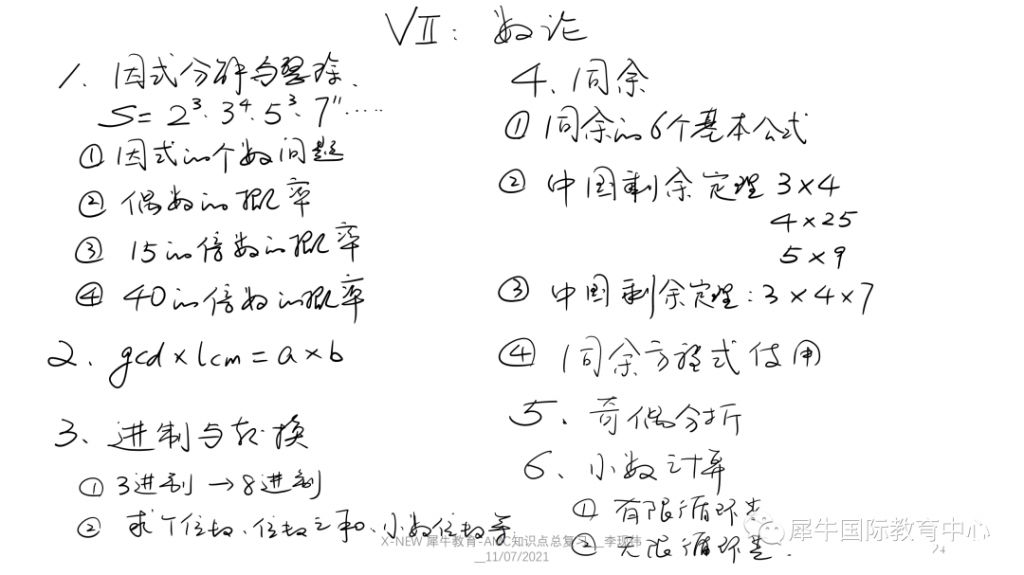 VII: 数论
1. 因式分解与整除.
S= 2³·3⁴·5³·7¹¹·····
① 因式的个数问题
② 偶数的概率
③ 15的倍数的概率
④ 40的倍数的概率
2. gcd×lcm=a×b
3、进制与转换
① 3进制→8进制
② 求个位数、位数之和、小数位数等
4、同余
① 同余的6个基本公式
② 中国剩余定理 3×4
4×25
5×9
③ 中国剩余定理:3×4×7
④ 同余方程式使用
5、奇偶分析
6、小数计算
① 有限循环
② 无限循环
X-NEW 犀牛教育-AMC知识点总复习__李
__11/07/2021
犀牛国际教育中心
24